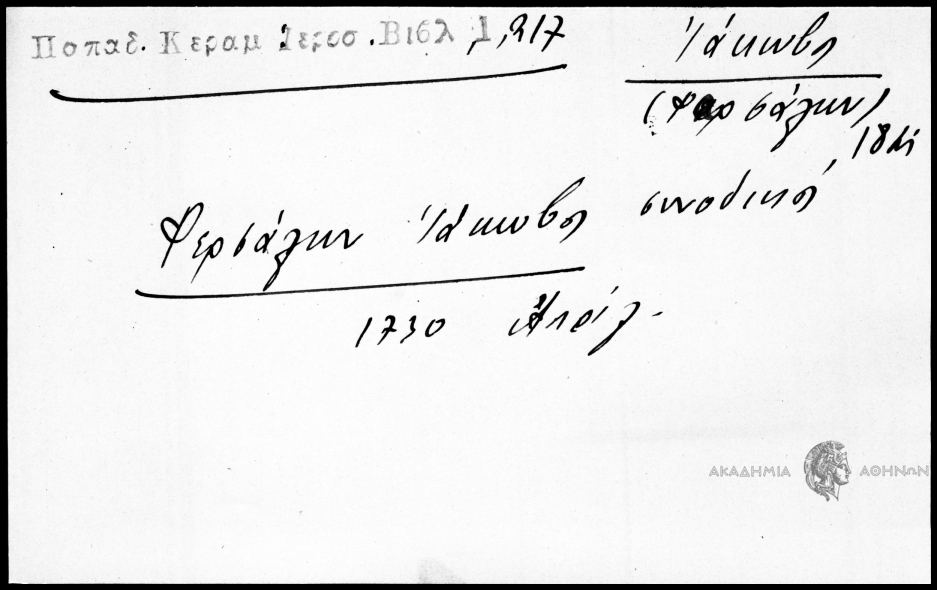 Ποπαδ. Κεραμ Ιεροσ. Βιβλ 1,,217
Ἰάκωβος
(Φαρσάλων)
Φερσάλων Ἰάκωβος συνοδικός,
1730 Ἀπρίλ.
ΑΚΑΔΗΜΙΑ ΑΘΗΝΩΝ